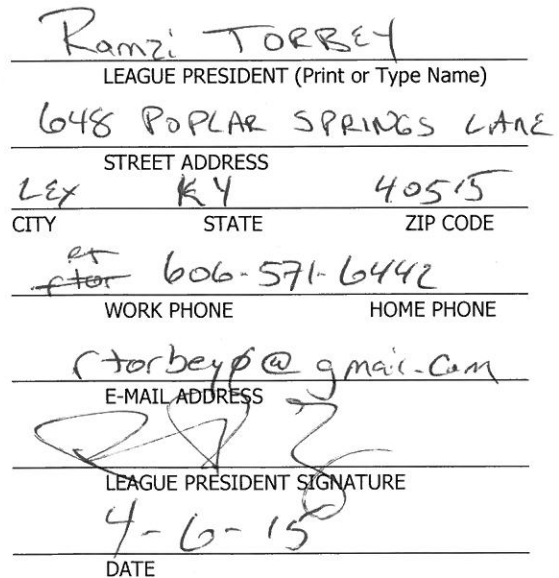 Ramzi TORBEY
LEAGUE PRESIDENT (Print or Type Name)
648 POPLAR SPRINGS LANE
STREET ADDRESS
LEX KY 40515
CITY STATE ZIP CODE
606-571-6442
WORK PHONE HOME PHONE
rtorbey0@gmail.com
E-MAIL ADDRESS
LEAGUE PRESIDENT SIGNATURE
4-6-15
DATE